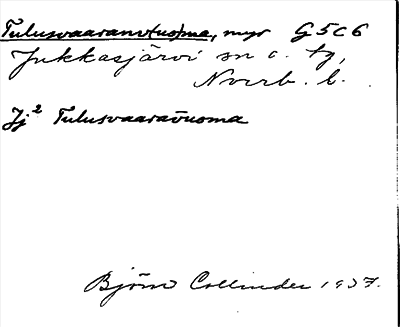 Tulusvaaran(vuo)ma, myr G5C6
Jukkasjärvi sn o. tg,
Norrb. l.
Jj² Tulusvaaravuoma
Björn Collinder 1937.